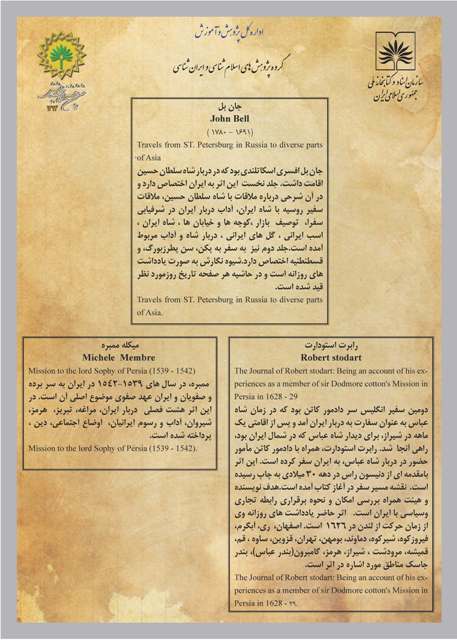 اداره کل پژوهش و آموزش
گروه پژوهش های اسلام شناسی و ایران شناسی
سازمان اسناد و کتابخانه ملی
جمهوری اسلامی ایران
جان بل
John Bell
(۱۶۹۱ – ۱۷۸۰)
Travels from ST. Petersburg in Russia to diverse parts
of Asia.
جان بل افسری اسکاتلندی بود که در دربار شاه سلطان حسین
اقامت داشت. جلد نخست این اثر به ایران اختصاص دارد و
در آن شرحی درباره ملاقات با شاه سلطان حسین، ملاقات
سفیر روسیه با شاه ایران، آداب دربار ایران در شرفیابی
سفرا، توصیف بازار ،کوچه ها و خیابان ها ، شاه ایران ،
اسب ایرانی ، گل های ایرانی ، دربار شاه و آداب مربوط
آمده است.جلد دوم نیز به سفر به پکن، سن پطرزبورگ، و
قسطنطنیه اختصاص دارد.شیوه نگارش به صورت یادداشت
های روزانه است و در حاشیه هر صفحه تاریخ روزمورد نظر
قید شده است.
Travels from ST. Petersburg in Russia to diverse parts
of Asia.
میکله ممبره
Michele Membre
Mission to the lord Sophy of Persia (1539 - 1542)
ممبره، در سال های ۱۵۳۹-۱۵۴۲ در ایران به سر برده
و صفویان و ایران عهد صفوی موضوع اصلی آن است. در
این اثر هشت فصلی دربار ایران، مراغه، تبریز، هرمز،
شیروان، آداب و رسوم ایرانیان، اوضاع اجتماعی، دین ،
پرداخته شده است.
Mission to the lord Sophy of Persia (1539 - 1542).
رابرت استودارت
Robert stodart
The Journal of Robert stodart: Being an account of his ex-
periences as a member of sir Dodmore cotton's Mission in
Persia in 1628 - 29
دومین سفیر انگلیس سر دادمور کاتن بود که در زمان شاه
عباس به عنوان سفارت به دربار ایران آمد و پس از اقامتی یک
ماهه در شیراز، برای دیدار شاه عباس که در شمال ایران بود،
راهی آنجا شد. رابرت استودارت، همراه با دادمور کاتن مأمور
حضور در دربار شاه عباس، به ایران سفر کرده است. این اثر
بامقدمه ای از دنیسون راس در دهه ۳۰ میلادی به چاپ رسیده
است. نقشه مسیر سفر در آغاز کتاب آمده است.هدف نویسنده
و هیئت همراه بررسی امکان و نحوه برقراری رابطه تجاری
وسیاسی با ایران است. اثر حاضر یادداشت های روزانه وی
از زمان حرکت از لندن در ۱۶۲۶ است. اصفهان، ری، ابگرم،
فیروزکوه، شیرکوه، دماوند، بومهن، تهران، قزوین، ساوه ، قم،
قمیشه، مرودشت ، شیراز، هرمز، کامبرون(بندر عباس)، بندر
جاسک مناطق مورد اشاره در اثر است.
The Journal of Robert stodart: Being an account of his ex-
periences as a member of sir Dodmore cotton's Mission in
Persia in 1628 - ۲۹.